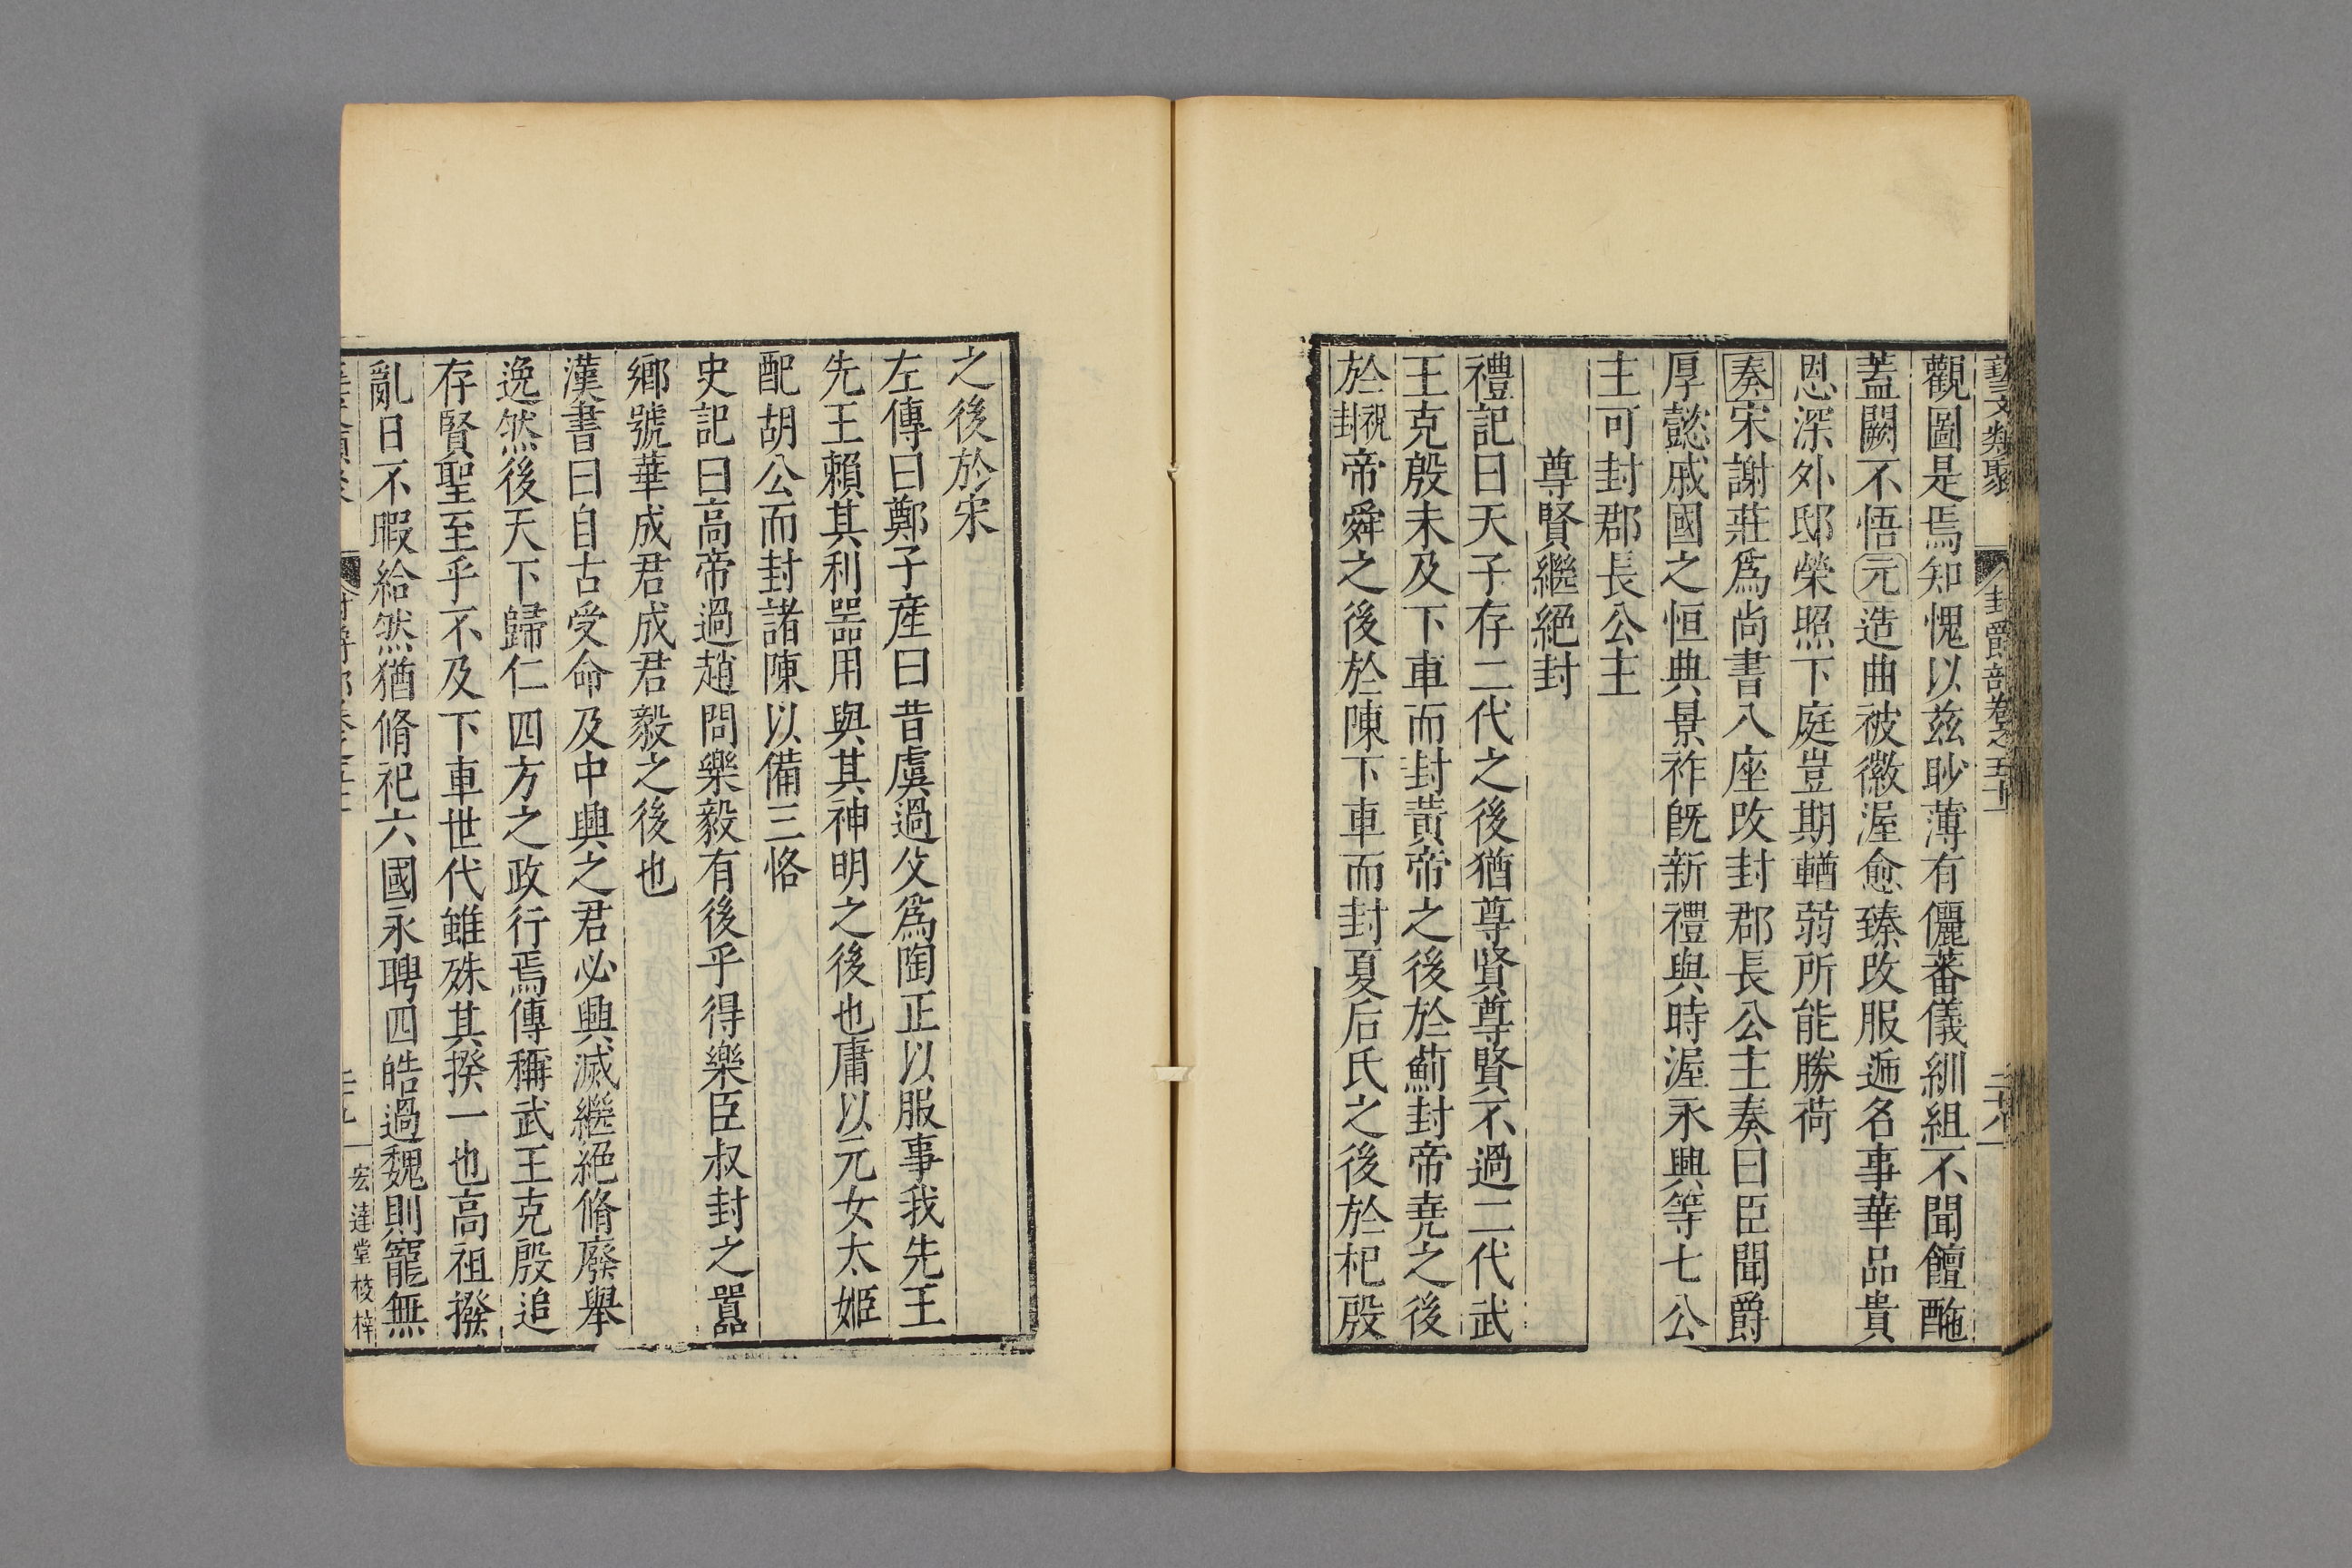 藝文類聚 封爵部卷之五十一 二十八
觀圖是焉知愧以兹眇薄有儷蕃儀紃組不聞饘酏
蓋闕不悟元造曲被徽渥愈臻改服遄名事華品貴
恩深外邸榮照下庭豈期輶弱所能勝荷
奏宋謝莊爲尚書八座改封郡長公主奏曰臣聞爵
厚懿戚國之恒典景祚旣新禮與時渥永興等七公
主可封郡長公主
尊賢繼絕封
禮記曰天子存二代之後猶尊賢尊賢不過二代武
王克殷未及下車而封黃帝之後於薊封帝堯之後
於祝封帝舜之後於陳下車而封夏后氏之後於杞殷
之後於宋
左傳曰鄭子產曰昔虞過父爲陶正以服事我先王
先王賴其利器用與其神明之後也庸以元女太姬
配胡公而封諸陳以備三恪
史記曰高帝過趙問樂毅有後乎得樂臣叔封之嚣
鄉號華成君成君毅之後也
漢書曰自古受命及中興之君必興滅繼絕脩廢舉
逸然後天下歸仁四方之政行焉傳稱武王克殷追
存賢聖至乎不及下車世代雖殊其揆一也高祖撥
亂日不暇給然猶脩祀六國永聘四皓過魏則寵無
宏達堂校梓